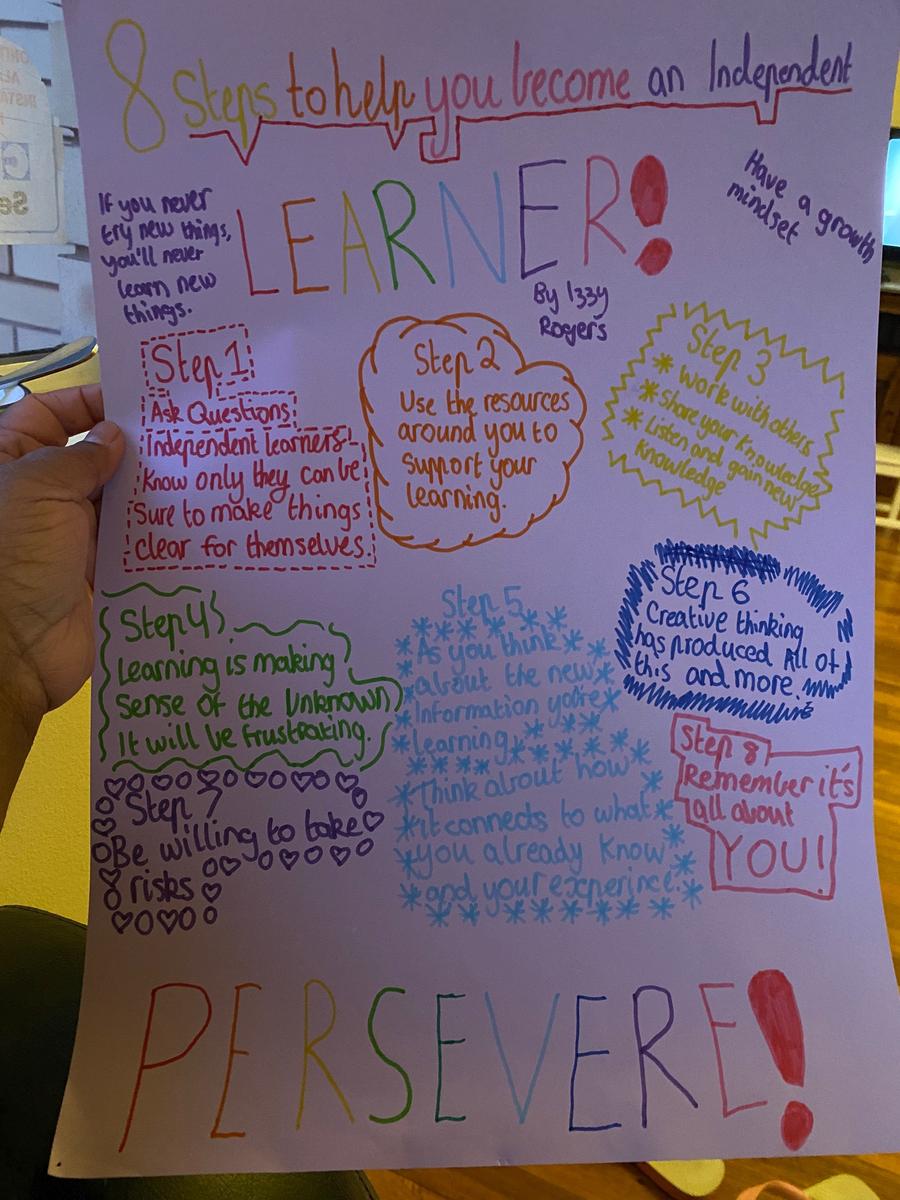 8 Steps to help you become an Independent
LEARNER!
If you never
try new things,
you'll never
learn new
things.
Have a growth
mindset
By Izzy
Rogers
Step 1
Ask Questions
Independent learners
know only they can be
Sure to make things
clear for themselves.
Step 2
Use the resources
around you to
Support your
learning.
Step 3
* work with others
* Share your knowledge
* Listen and gain new
knowledge
Step 4
Learning is making
sense of the Unknown
It will be frustrating.
Step 5
As you think
about the new
Information you're
learning,
Think about how
it connects to what
you already know
and your experince.
Step 6
Creative thinking
has produced All of
this and more.
Step 7
Be willing to take
risks
Step 8
Remember it's
all about
YOU!
PERSEVERE!